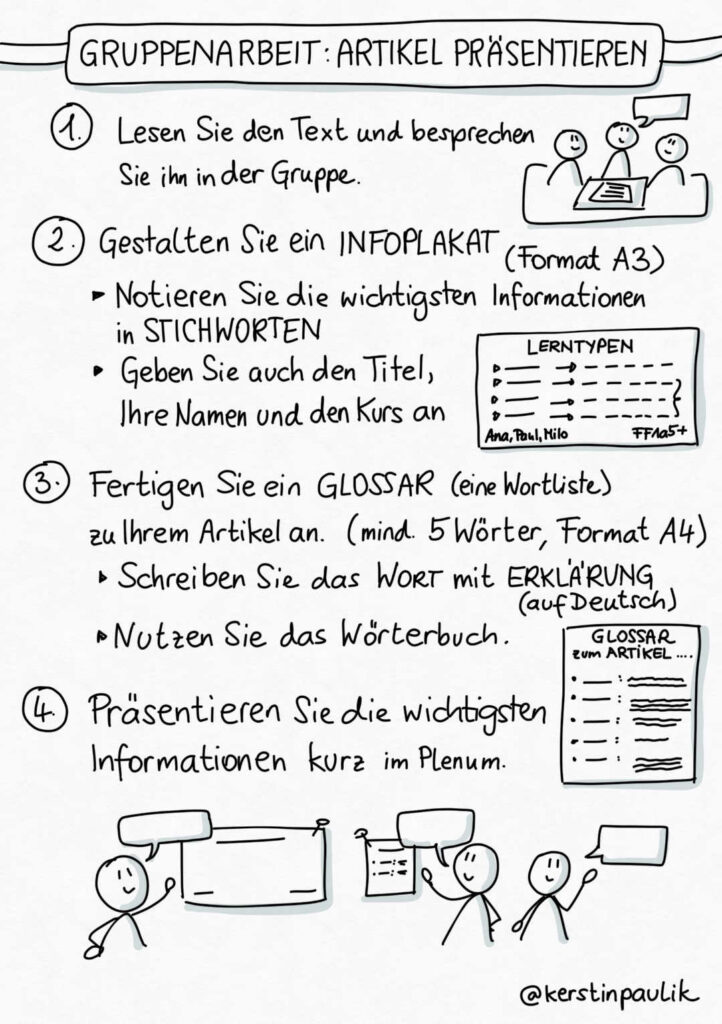 GRUPPENARBEIT: ARTIKEL PRÄSENTIEREN
1. Lesen Sie den Text und besprechen
Sie ihn in der Gruppe.
2. Gestalten Sie ein INFOPLAKAT (Format A3)
▸ Notieren Sie die wichtigsten Informationen
in STICHWORTEN
▸ Geben Sie auch den Titel,
Ihre Namen und den Kurs an
LERNTYPEN
Ana, Paul, Milo FF1a5+
3. Fertigen Sie ein GLOSSAR (eine Wortliste)
zu Ihrem Artikel an. (mind. 5 Wörter, Format A4)
▸ Schreiben Sie das WORT mit ERKLÄRUNG
(auf Deutsch)
▸ Nutzen Sie das Wörterbuch.
GLOSSAR
zum ARTIKEL ....
4. Präsentieren Sie die wichtigsten
Informationen kurz im Plenum.
@kerstinpaulik